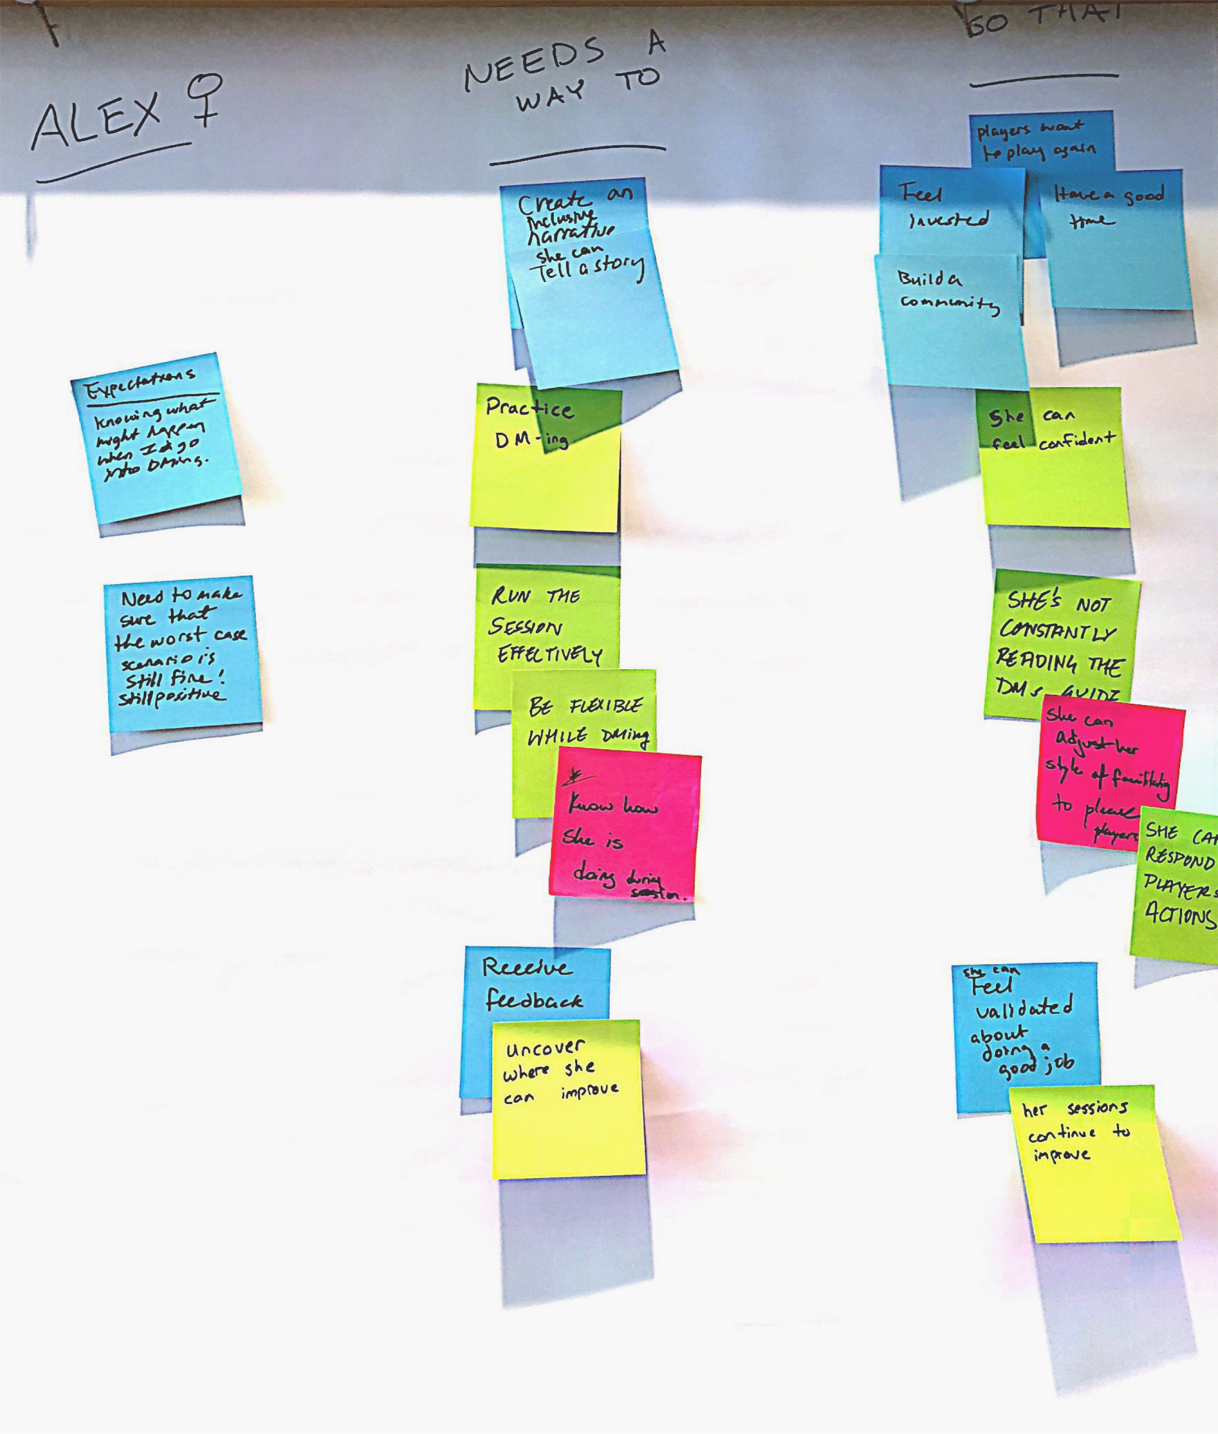 ALEX ♀
NEEDS A
WAY TO
SO THAT
Expectations
Knowing what
might happen
when I go
into DMing.
Need to make
sure that
the worst case
scenario is
still fine!
still positive
Create an
inclusive
narrative
she can
Tell a story
Practice
DM-ing
RUN THE
SESSION
EFFECTIVELY
BE FLEXIBLE
WHILE DMing
Know how
she is
doing during
session.
Receive
feedback
uncover
where she
can improve
players want
to play again
Feel
invested
Have a good
time
Build a
community
she can
feel confident
SHE'S NOT
CONSTANTLY
READING THE
DMs GUIDE
she can
adjust her
style of facilitating
to please
players
SHE CA
RESPOND
PLAYERS
ACTIONS
she can
Feel
validated
about
doing a
good job
her sessions
continue to
improve